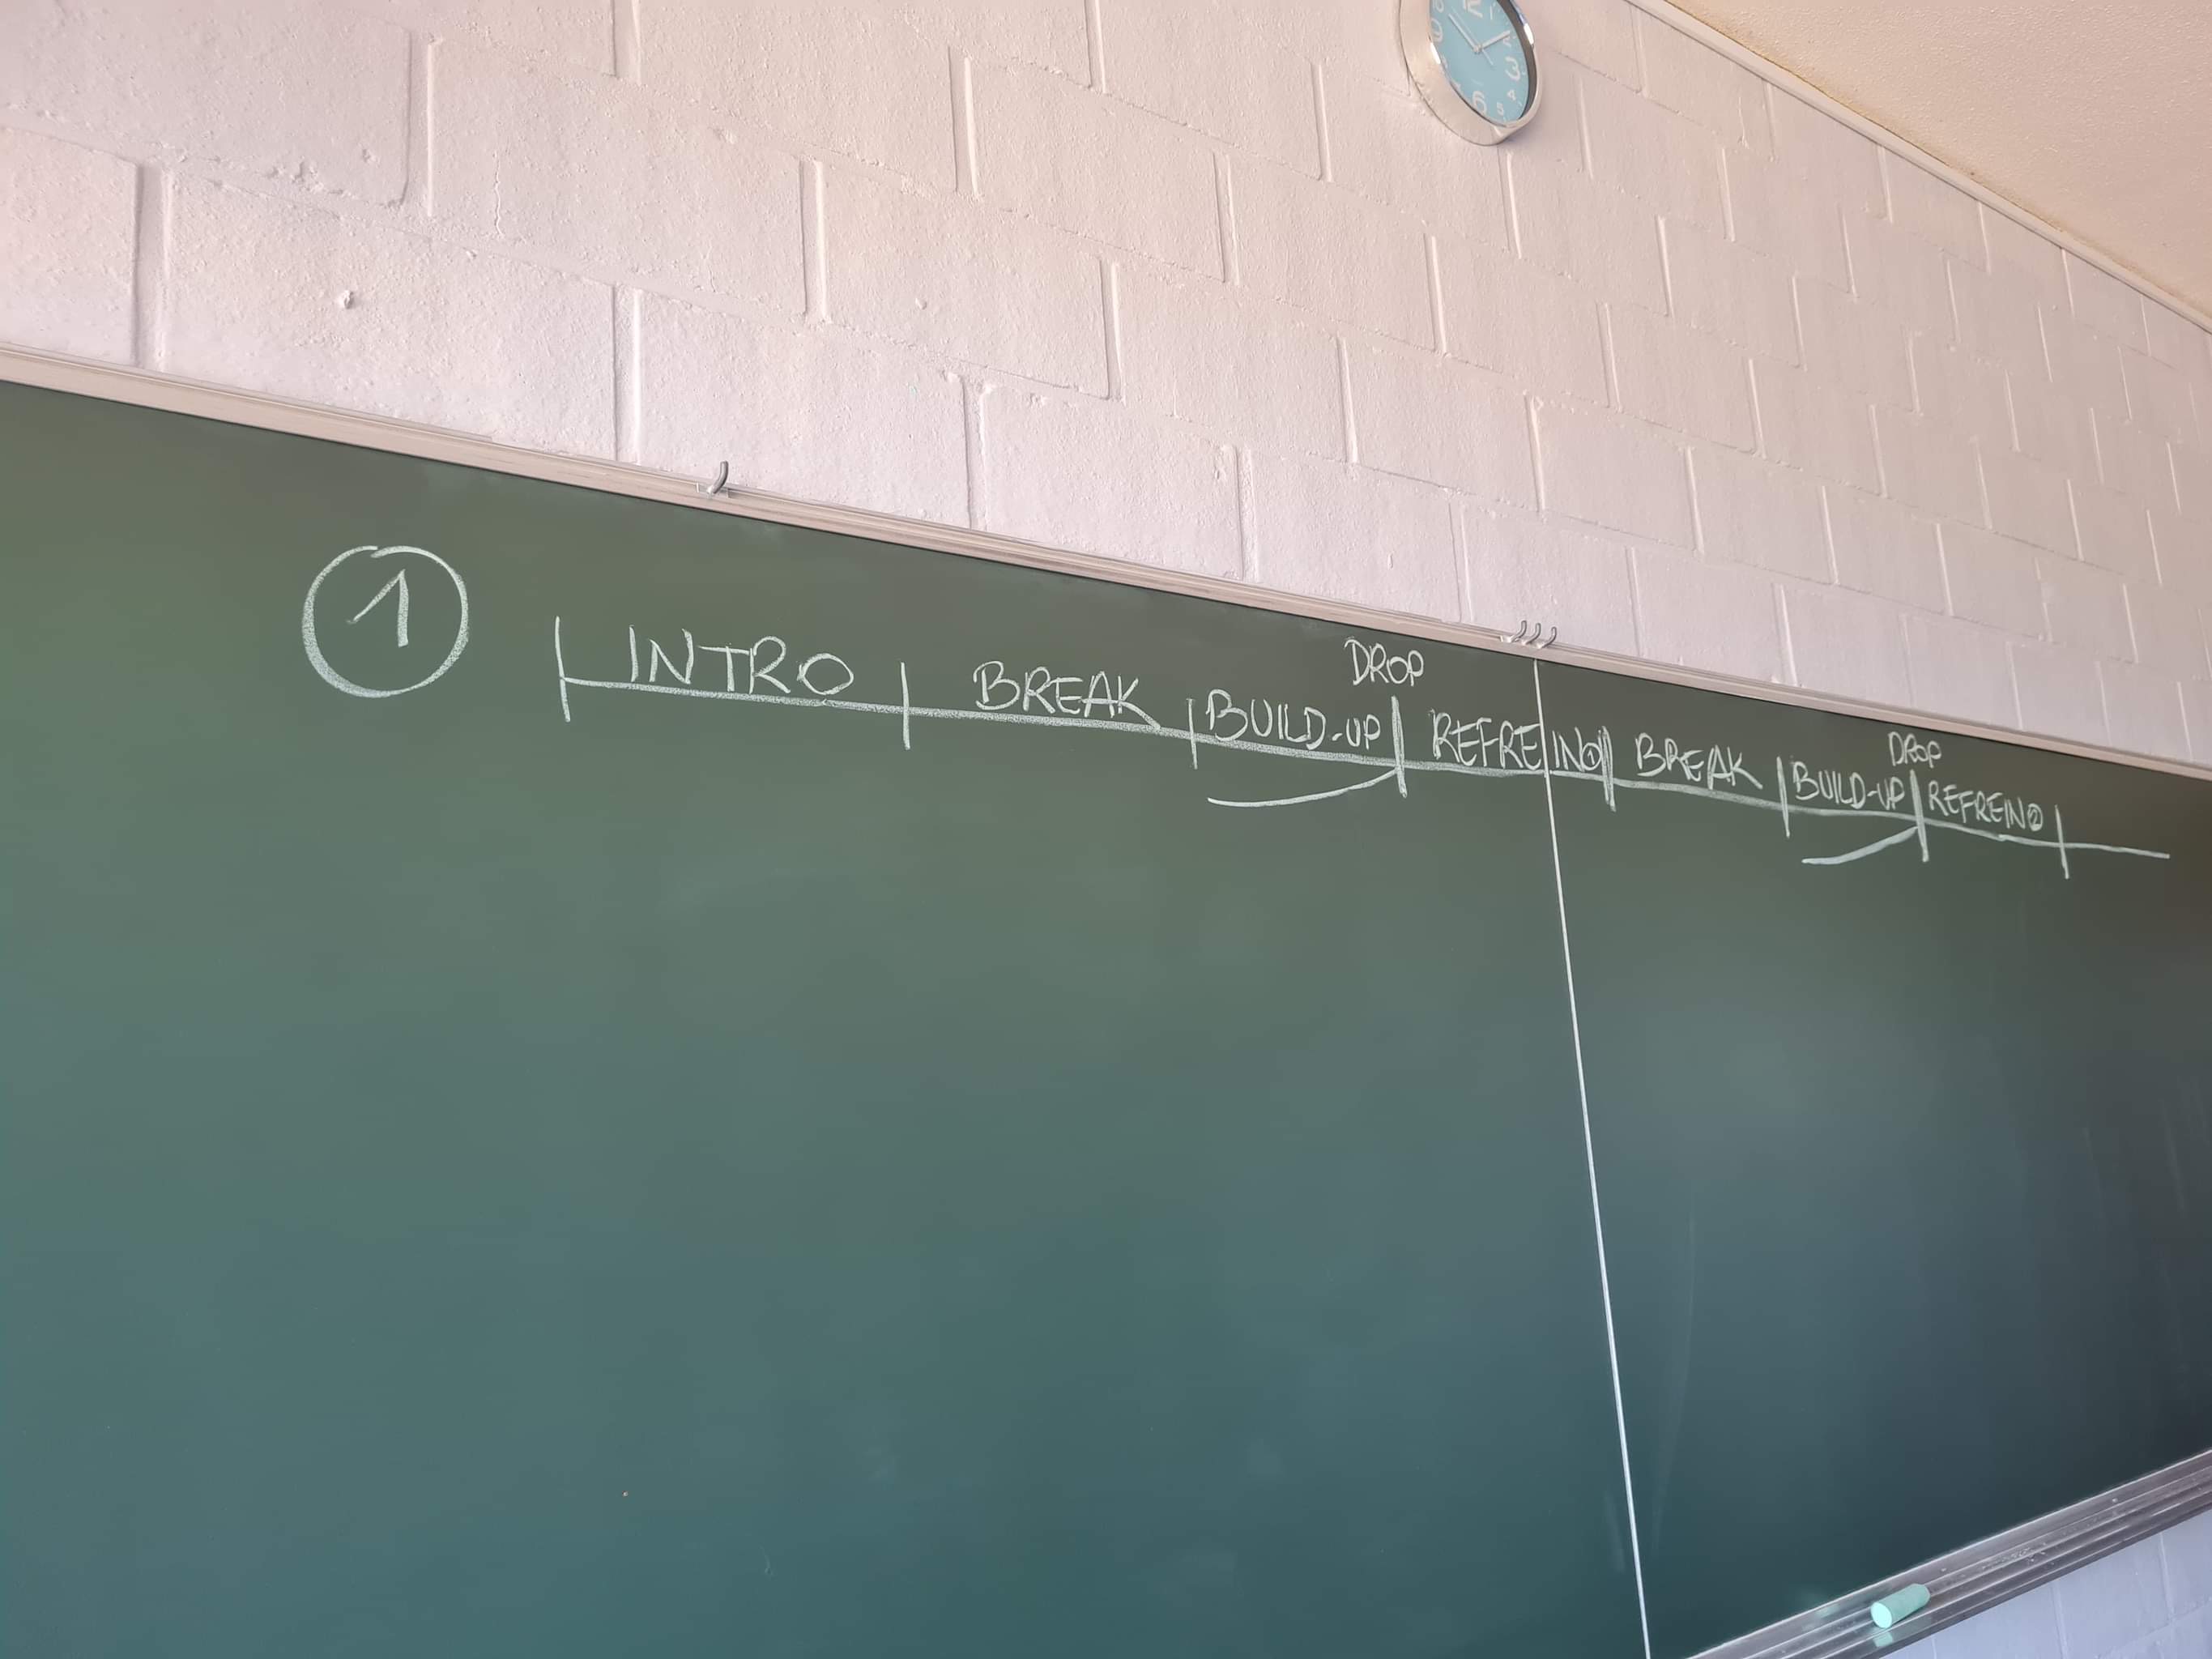 1
DROP DROP
INTRO BREAK BUILD-UP REFREIN① BREAK BUILD-UP REFREIN②